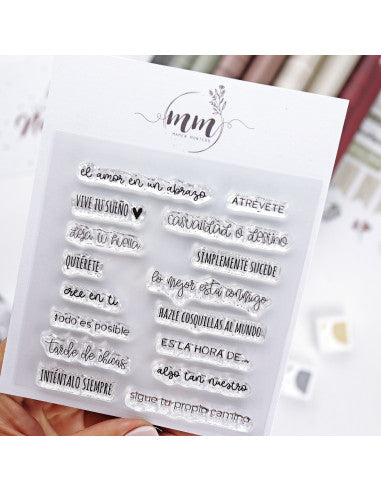 mm
el amor en un abrazo
ATRÉVETE
VIVE TU SUEÑO
casualidad o destino
deja tu huella
SIMPLEMENTE SUCEDE
QUIÉRETE
lo mejor esta conmigo
cree en ti
HAZLE COSQUILLAS AL MUNDO
todo es posible
ES LA HORA DE...
tarde de chicas
algo tan nuestro
INTÉNTALO SIEMPRE
sigue tu propio camino